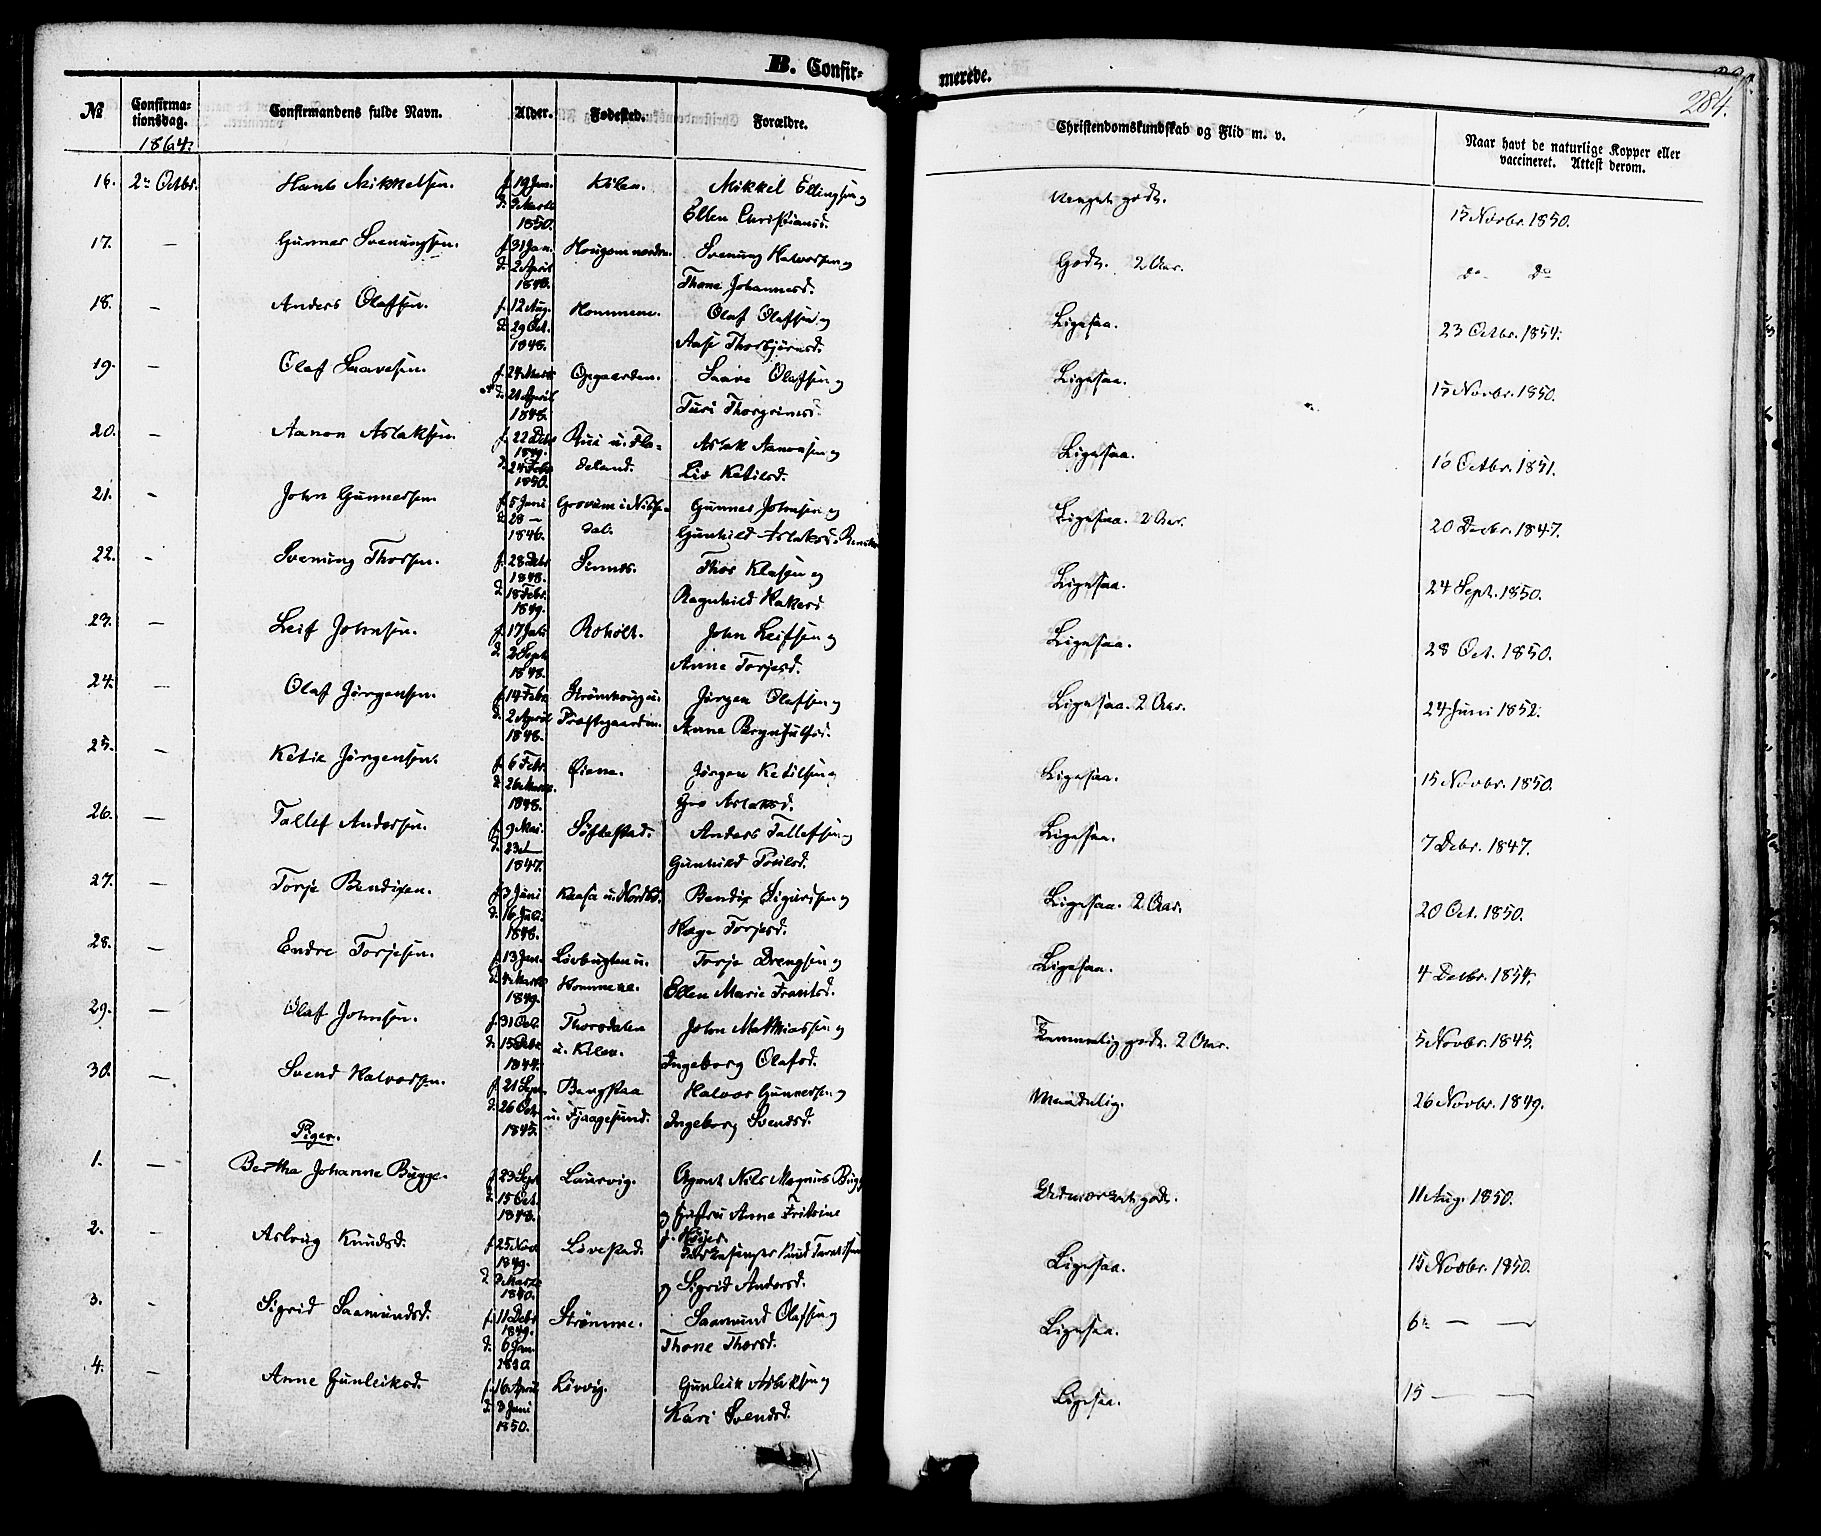 B. Confir-
merede.
284.
№
Confirma-
tionsdag.
Confirmandens fulde Navn.
Alder.
Fødested.
Forældre.
Christendomskundskab og Flid m. v.
Naar havt de naturlige Kopper eller
vaccineret. Attest derom.
1864.
16. 2den Octbr. Hans Mikkelsen. f. 19 Jan. Kilen. Mikkel Ellingsen og Meget godt. 15 Novbr. 1850.
d. 3 Marts Ellen Christiansd.
1850.
17. — Gunnar Svenungsen. f. 31 Jan. Haugom nordre. Svenung Halvorsen og Godt. 2 Aar. do do
d. 2 April Thone Johannesd.
1848.
18. — Anders Olafsen. f. 12 Aug. Hommene. Olaf Olafsen og Ligesaa. 23 Octbr. 1854.
d. 29 Oct. Aase Thorbjørnsd.
1848.
19. — Olaf Saavesen. f. 24 Marts Opgaarden. Saave Olafsen og Ligesaa. 15 Novbr. 1850.
d. 21 April Turi Thorgrimsd.
1848.
20. — Aanon Aslaksen. f. 22 Debr. Rui u. Fla- Aslak Aanonsen og Ligesaa. 16 Octbr. 1851.
1849.
d. 24 Febr. deland. Liv Ketilsd.
1850.
21. — John Gunnarsen f. 5 Juni Grovum i Nisse- Gunnar Johnsen og Ligesaa. 2 Aar. 20 Decbr. 1847.
d. 28 — dal. Gunhild Aslaksd.
1846.
22. — Svenung Thorsen. f. 28 Debr. Sinnes. Thor Klasen og Ligesaa. 24 Sept. 1850.
1848.
d. 18 Febr. Ragnhild Hakesd
1849.
23. — Leif Johnsen. f. 17 Juli Roholt. John Leifsen og Ligesaa. 28 Oct. 1850.
d. 2 Sept Anne Torjesd.
1848.
24. — Olaf Jørgensen. f. 14 Febr. Strømhaug u. Jørgen Olafsen og Ligesaa. 2 Aar. 24 Juni 1852.
d. 2 April Præstegaarden. Anne Brynjulfsd.
1848.
25. — Ketil Jørgensen. f. 6 Febr. Øiene. Jørgen Ketilsen og Ligesaa. 15 Novbr. 1850.
d. 26 Marts Gro Aslaksd.
1848.
26. — Tallef Andersen. f. 9 Mai. Søftestad. Anders Tallefsen og Ligesaa. 7 Debr. 1847.
d. 23d — Gunhild
1847.
27. — Torje Bendixen. f. 3 Juni Kaasa u. Nordbø. Bendix Sigurdsen og Ligesaa. 2 Aar. 20 Oct. 1850.
d. 16 Juli. Hæge Torjesd.
1848.
28. — Endre Torjesen. f. 13 Jan. Livbugten u. Torje Drengsen og Ligesaa. 4 Decbr. 1854.
d. 4 Marts Hommene. Ellen Marie Frantsd.
1849.
29. — Olaf Johnsen. f. 31 Oct. Thorsdalen John Mathiassen og Temmelig godt. 2 Aar. 5 Novbr. 1845.
d. 15 Debr. u. Kilen. Ingeborg Olafsd.
1844.
30. — Svend Halvorsen. f. 21 Sept. Bergstaa Halvor Gunnarsen og Maadelig. 26 Novbr. 1849.
d. 26 Oct. u. Fjaagesund. Ingeborg Svendsd.
1845.
Piger.
1. — Bertha Johanne Bugge. f. 23 Sept Laurvig. Agent Nils Magnus Bugge Udmærket godt. 11 Aug. 1850.
d. 15 Oct. og Anne
1848. f.
2. — Aslaug Knudsd. f. 25 Nov Livestad. Knud Ligesaa. 15 Novbr. 1850.
1849.
d. 3 Marts og Sigrid Andersd.
1850.
3. — Sigrid Saamundsd. f. 11 Debr Strømme. Saamund Olafsen og Ligesaa. 6te — —
1849.
d. 6 Jan. Thone Thorsd.
1850
4. — Anne Gunleiksd. f. 16 April Livvig. Gunleik Aslaksen og Ligesaa. 15 — —
d. 3 Juni Kari Svendsd.
1850.